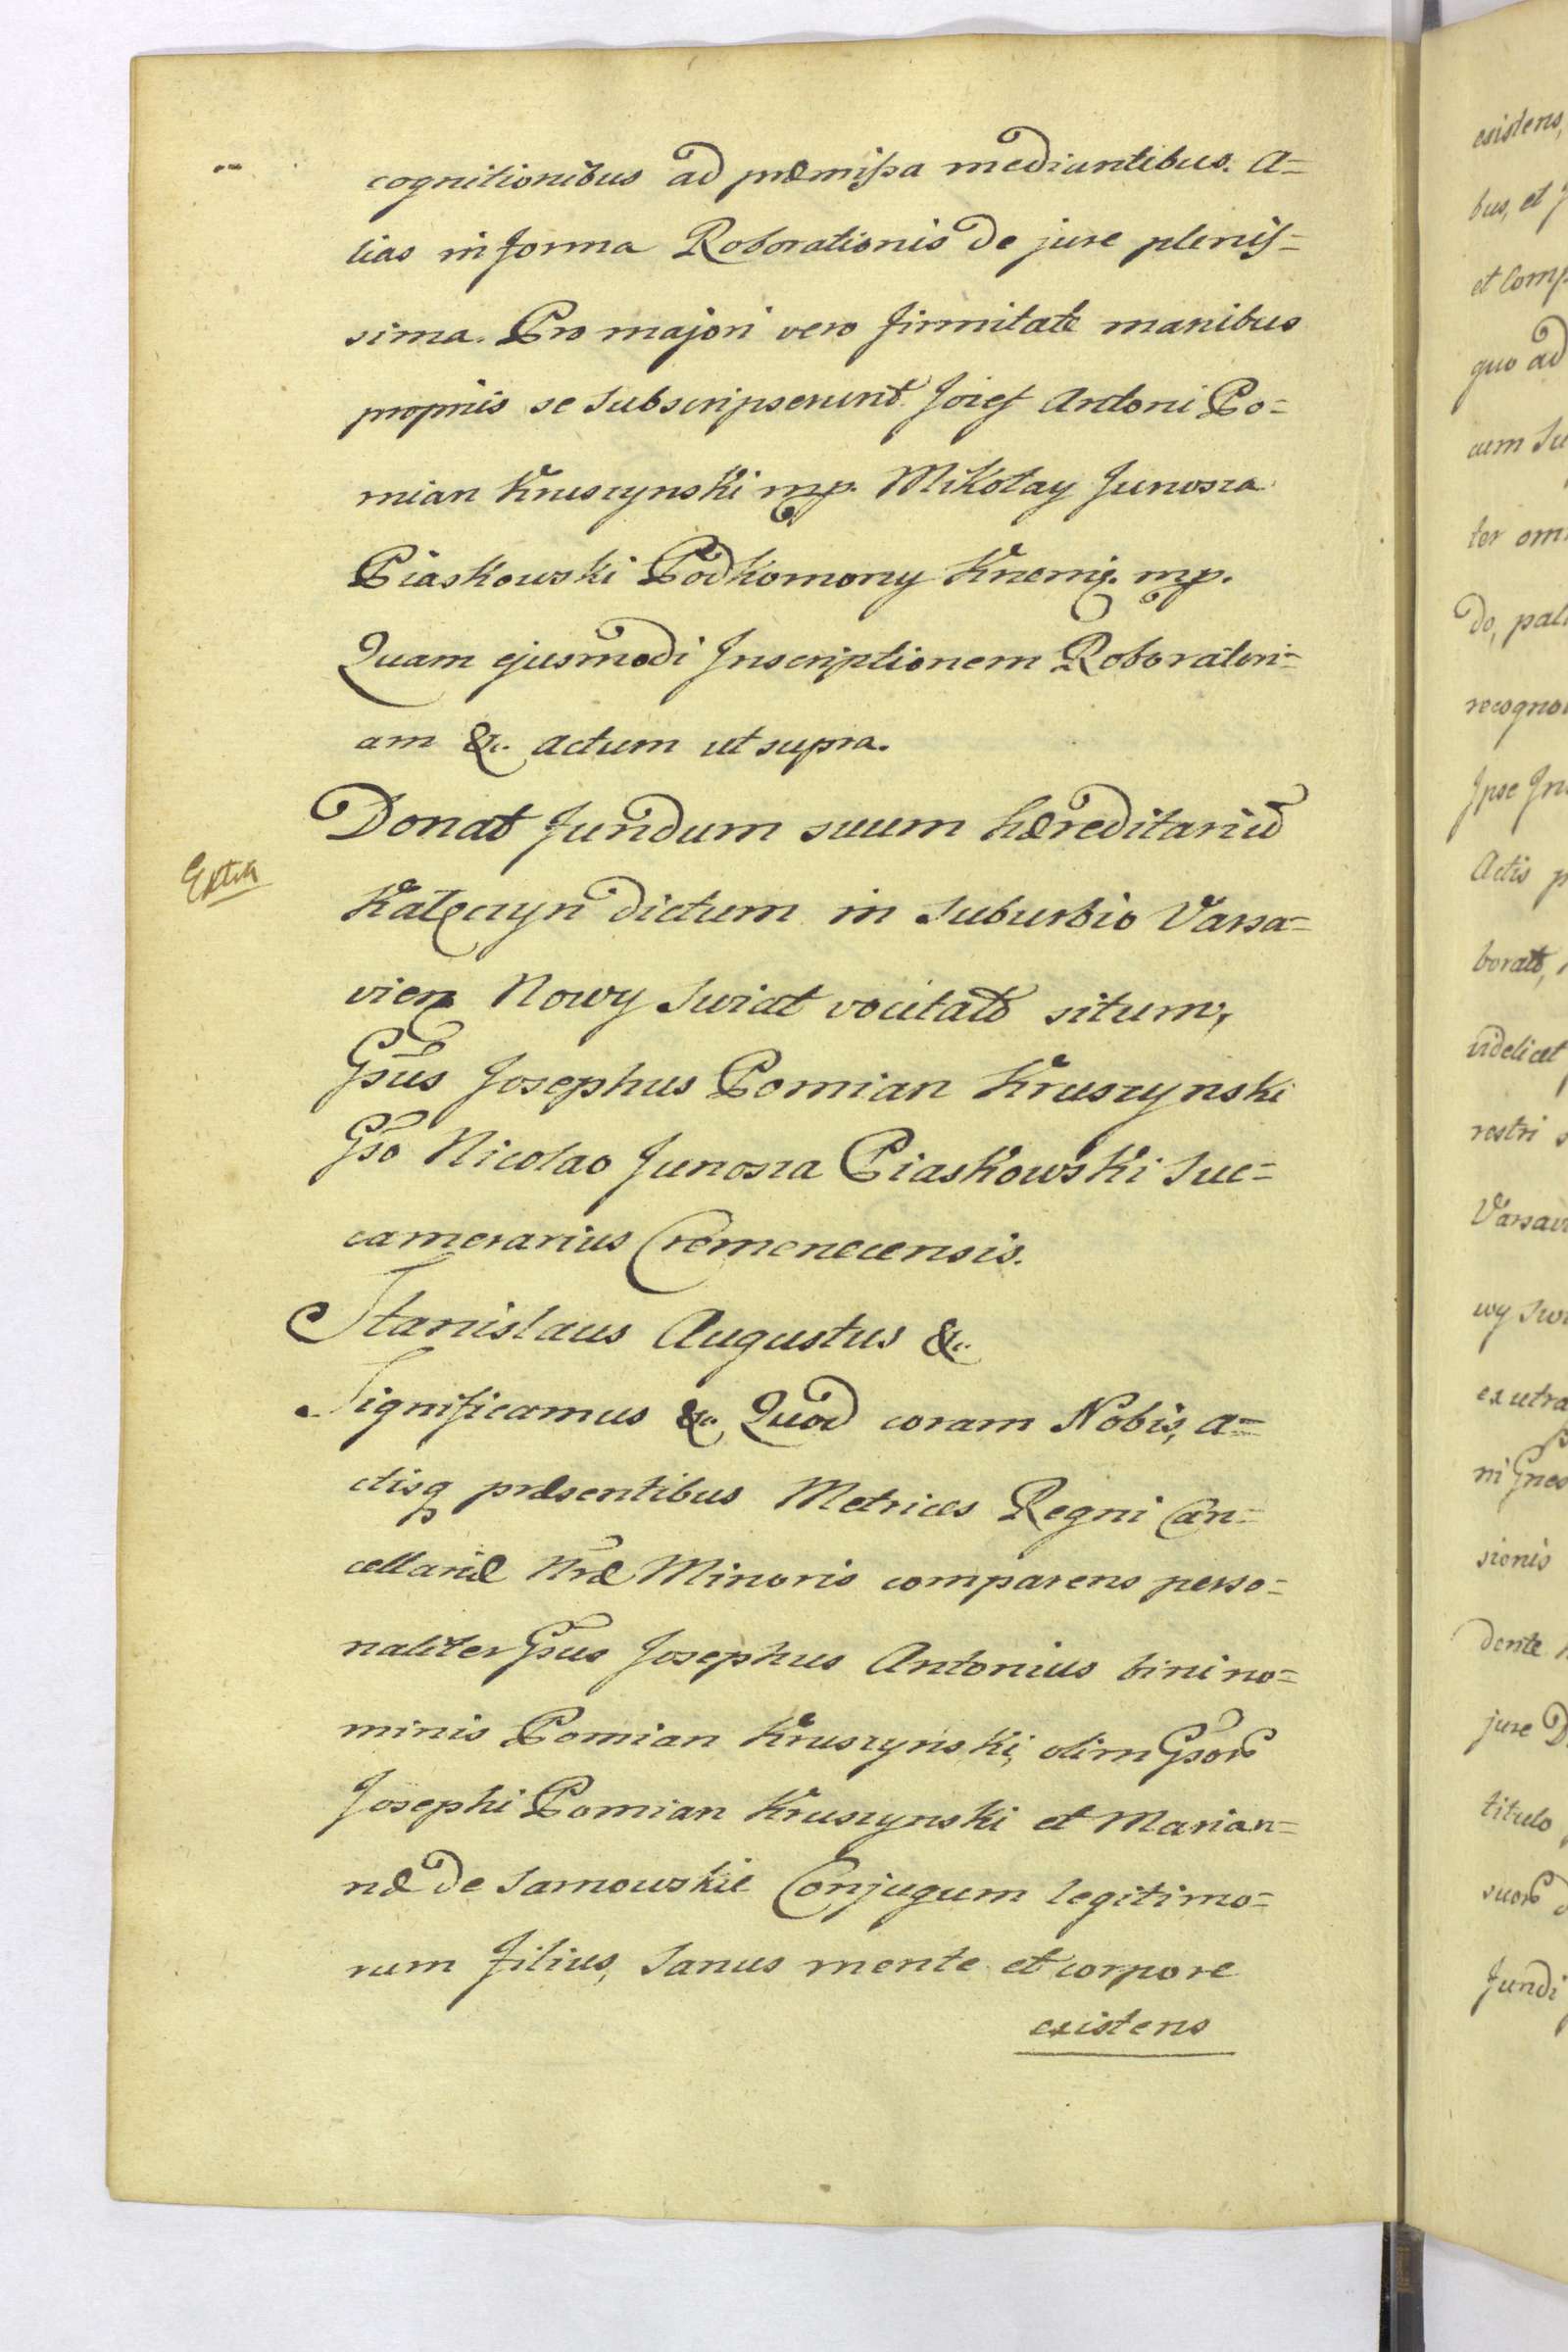 cognitionibus ad præmissa mediantibus. a=
lias in forma Roborationis de jure plenis=
sima. Pro majori vero firmitate manibus
propriis se subscripserunt Jozef Antoni Po=
mian Kruszynski mp. Mikołay Junosza
Piaskowski Podkomorzy Krzemie. mp.
Quam ejusmodi Inscriptionem Roboratori=
am &c. actum ut supra.
Donat fundum suum hæreditariũ
Kałęczyn dictum in Suburbio Varsa=
vien Nowy Swiat vocitato situm,
Gsus Josephus Pomian Kruszynski
Gso Nicolao Junosza Piaskowski Suc=
camerarius Cremenecensis.
Stanislaus Augustus &c.
Significamus &c. Quod coram Nobis, a=
ctisq præsentibus Metrices Regni Can=
cellariæ Nræ Minoris comparens perso=
naliter Gsus Josephus Antonius bini no=
minis Pomian Kruszynski, olim Gsorũ
Josephi Pomian Kruszynski et Marian=
næ de Sarnowskie Conjugum legitimo=
rum filius, Sanus mente et corpore
existens
existens,
bus, et
et Comp
quo ad
cum Su
ter om
do, pal
recogno
Ipse In
Actis p
borato,
videlicet
restri s
Varsavi
wy Swi
ex utra
sionis
dente
jure D
titulo
fundi